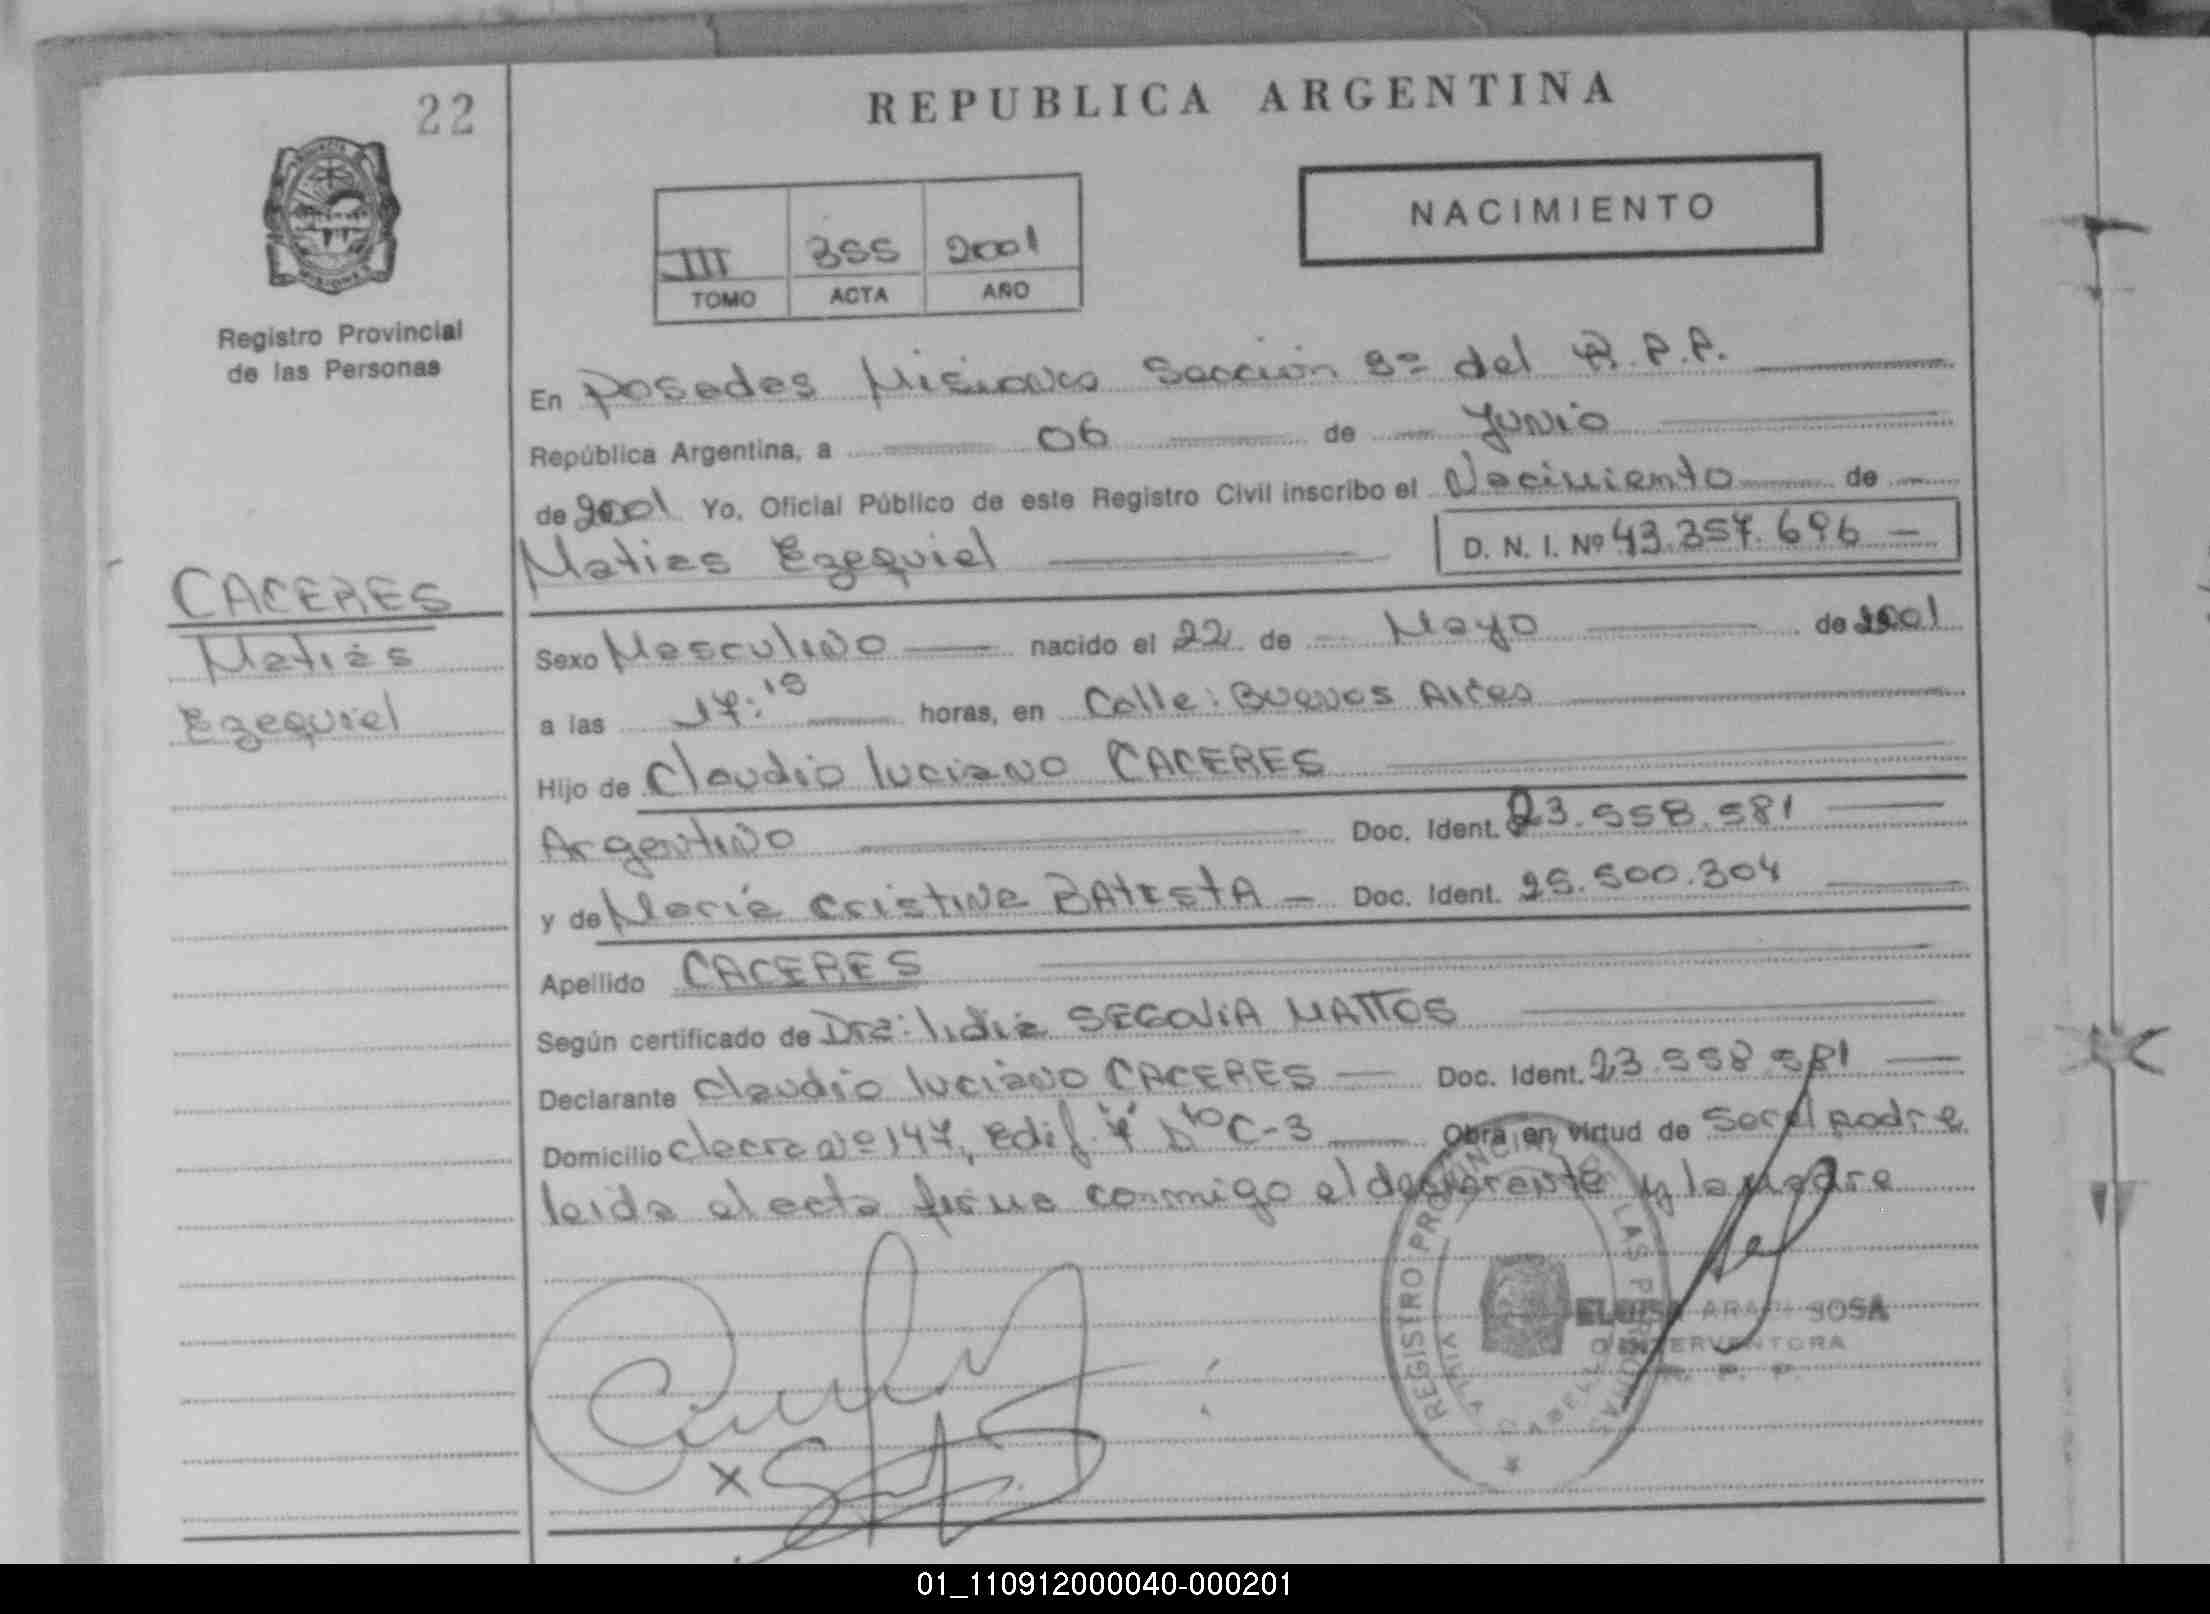 22
REPUBLICA ARGENTINA
NACIMIENTO
III 355 2001
TOMO ACTA AÑO
Registro Provincial
de las Personas
En Posadas Misiones Sección 3º del R.P.P.
República Argentina, a 06 de Junio
de 2001 Yo, Oficial Público de este Registro Civil inscribo el Nacimiento de
Matias Ezequiel D. N. I. Nº 43.357.696 —
CACERES
Matias
Ezequiel
Sexo Masculino nacido el 22 de Mayo de 2001
a las 17:15 horas, en Calle: Buenos Aires
Hijo de Claudio Luciano CACERES
Argentino Doc. Ident. 23.558.581
y de Maria Cristina BATISTA — Doc. Ident. 25.500.304
Apellido CACERES
Según certificado de Dra: Lidia SEGOVIA MATTOS
Declarante Claudio Luciano CACERES — Doc. Ident. 23.558.581
Domicilio Chacra Nº 147, Edif. 4 Dto C-3 Obra en virtud de ser el padre
leida el acta firma conmigo el declarante y la madre
REGISTRO PROVINCIAL DE LAS PERSONAS
VILLA CABELLO
SOSA
INTERVENTORA
R. P. P.
X
01_110912000040-000201